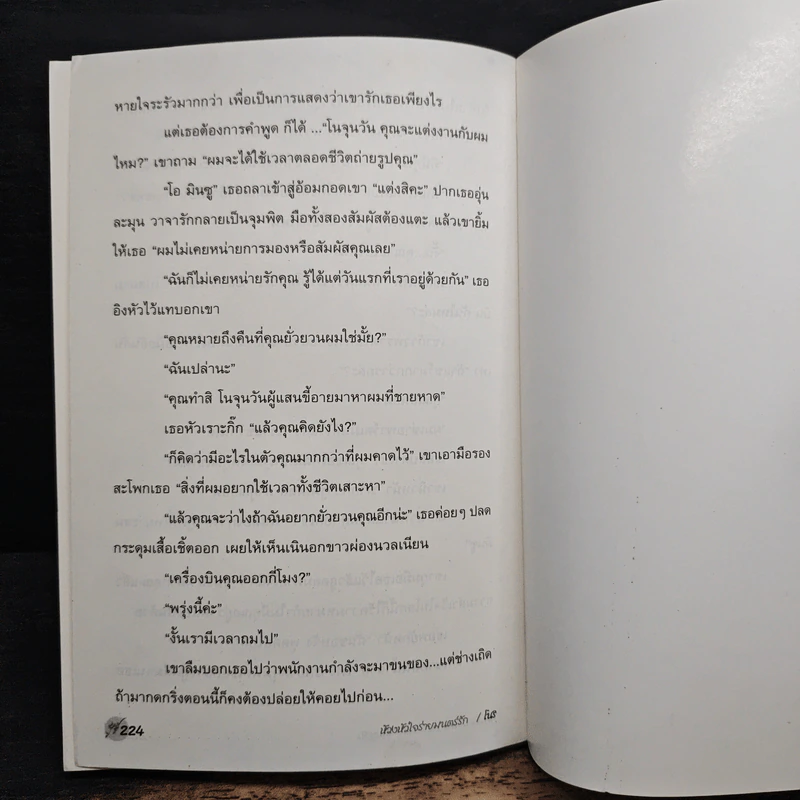 หายใจระรัวมากกว่า เพื่อเป็นการแสดงว่าเขารักเธอเพียงไร
แต่เธอต้องการคำพูด ก็ได้ ...“โนจุนวัน คุณจะแต่งงานกับผม
ไหม?” เขาถาม “ผมจะได้ใช้เวลาตลอดชีวิตถ่ายรูปคุณ”
“โอ มินซู” เธอถลาเข้าสู่อ้อมกอดเขา “แต่งสิคะ” ปากเธออุ่น
ละมุน วาจารักกลายเป็นจุมพิต มือทั้งสองสัมผัสต้องแตะ แล้วเขายิ้ม
ให้เธอ “ผมไม่เคยหน่ายการมองหรือสัมผัสคุณเลย”
“ฉันก็ไม่เคยหน่ายรักคุณ รู้ได้แต่วันแรกที่เราอยู่ด้วยกัน” เธอ
อิงหัวไว้แทบอกเขา
“คุณหมายถึงคืนที่คุณยั่วยวนผมใช่มั้ย?”
“ฉันเปล่านะ”
“คุณทำสิ โนจุนวันผู้แสนขี้อายมาหาผมที่ชายหาด”
เธอหัวเราะกิ๊ก “แล้วคุณคิดยังไง?”
“ก็คิดว่ามีอะไรในตัวคุณมากกว่าที่ผมคาดไว้” เขาเอามือรอง
สะโพกเธอ “สิ่งที่ผมอยากใช้เวลาทั้งชีวิตเสาะหา”
“แล้วคุณจะว่าไงถ้าฉันอยากยั่วยวนคุณอีกน่ะ” เธอค่อยๆ ปลด
กระดุมเสื้อเชิ้ตออก เผยให้เห็นเนินอกขาวผ่องนวลเนียน
“เครื่องบินคุณออกกี่โมง?”
“พรุ่งนี้ค่ะ”
“งั้นเรามีเวลาถมไป”
เขาลืมบอกเธอไปว่าพนักงานกำลังจะมาขนของ...แต่ช่างเถิด
ถ้ามากดกริ่งตอนนี้ก็คงต้องปล่อยให้คอยไปก่อน...
224
ห้วงหัวใจร่ายมนตร์รัก / โนริ